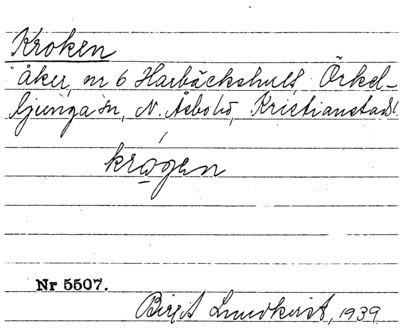 Kroken
åker, nr 6 Harbäckshult, Örkel-
ljunga sn, N. Åsbo hd, Kristianstads l.
krogen
Nr 5507.
Birgit Lundkvist, 1939